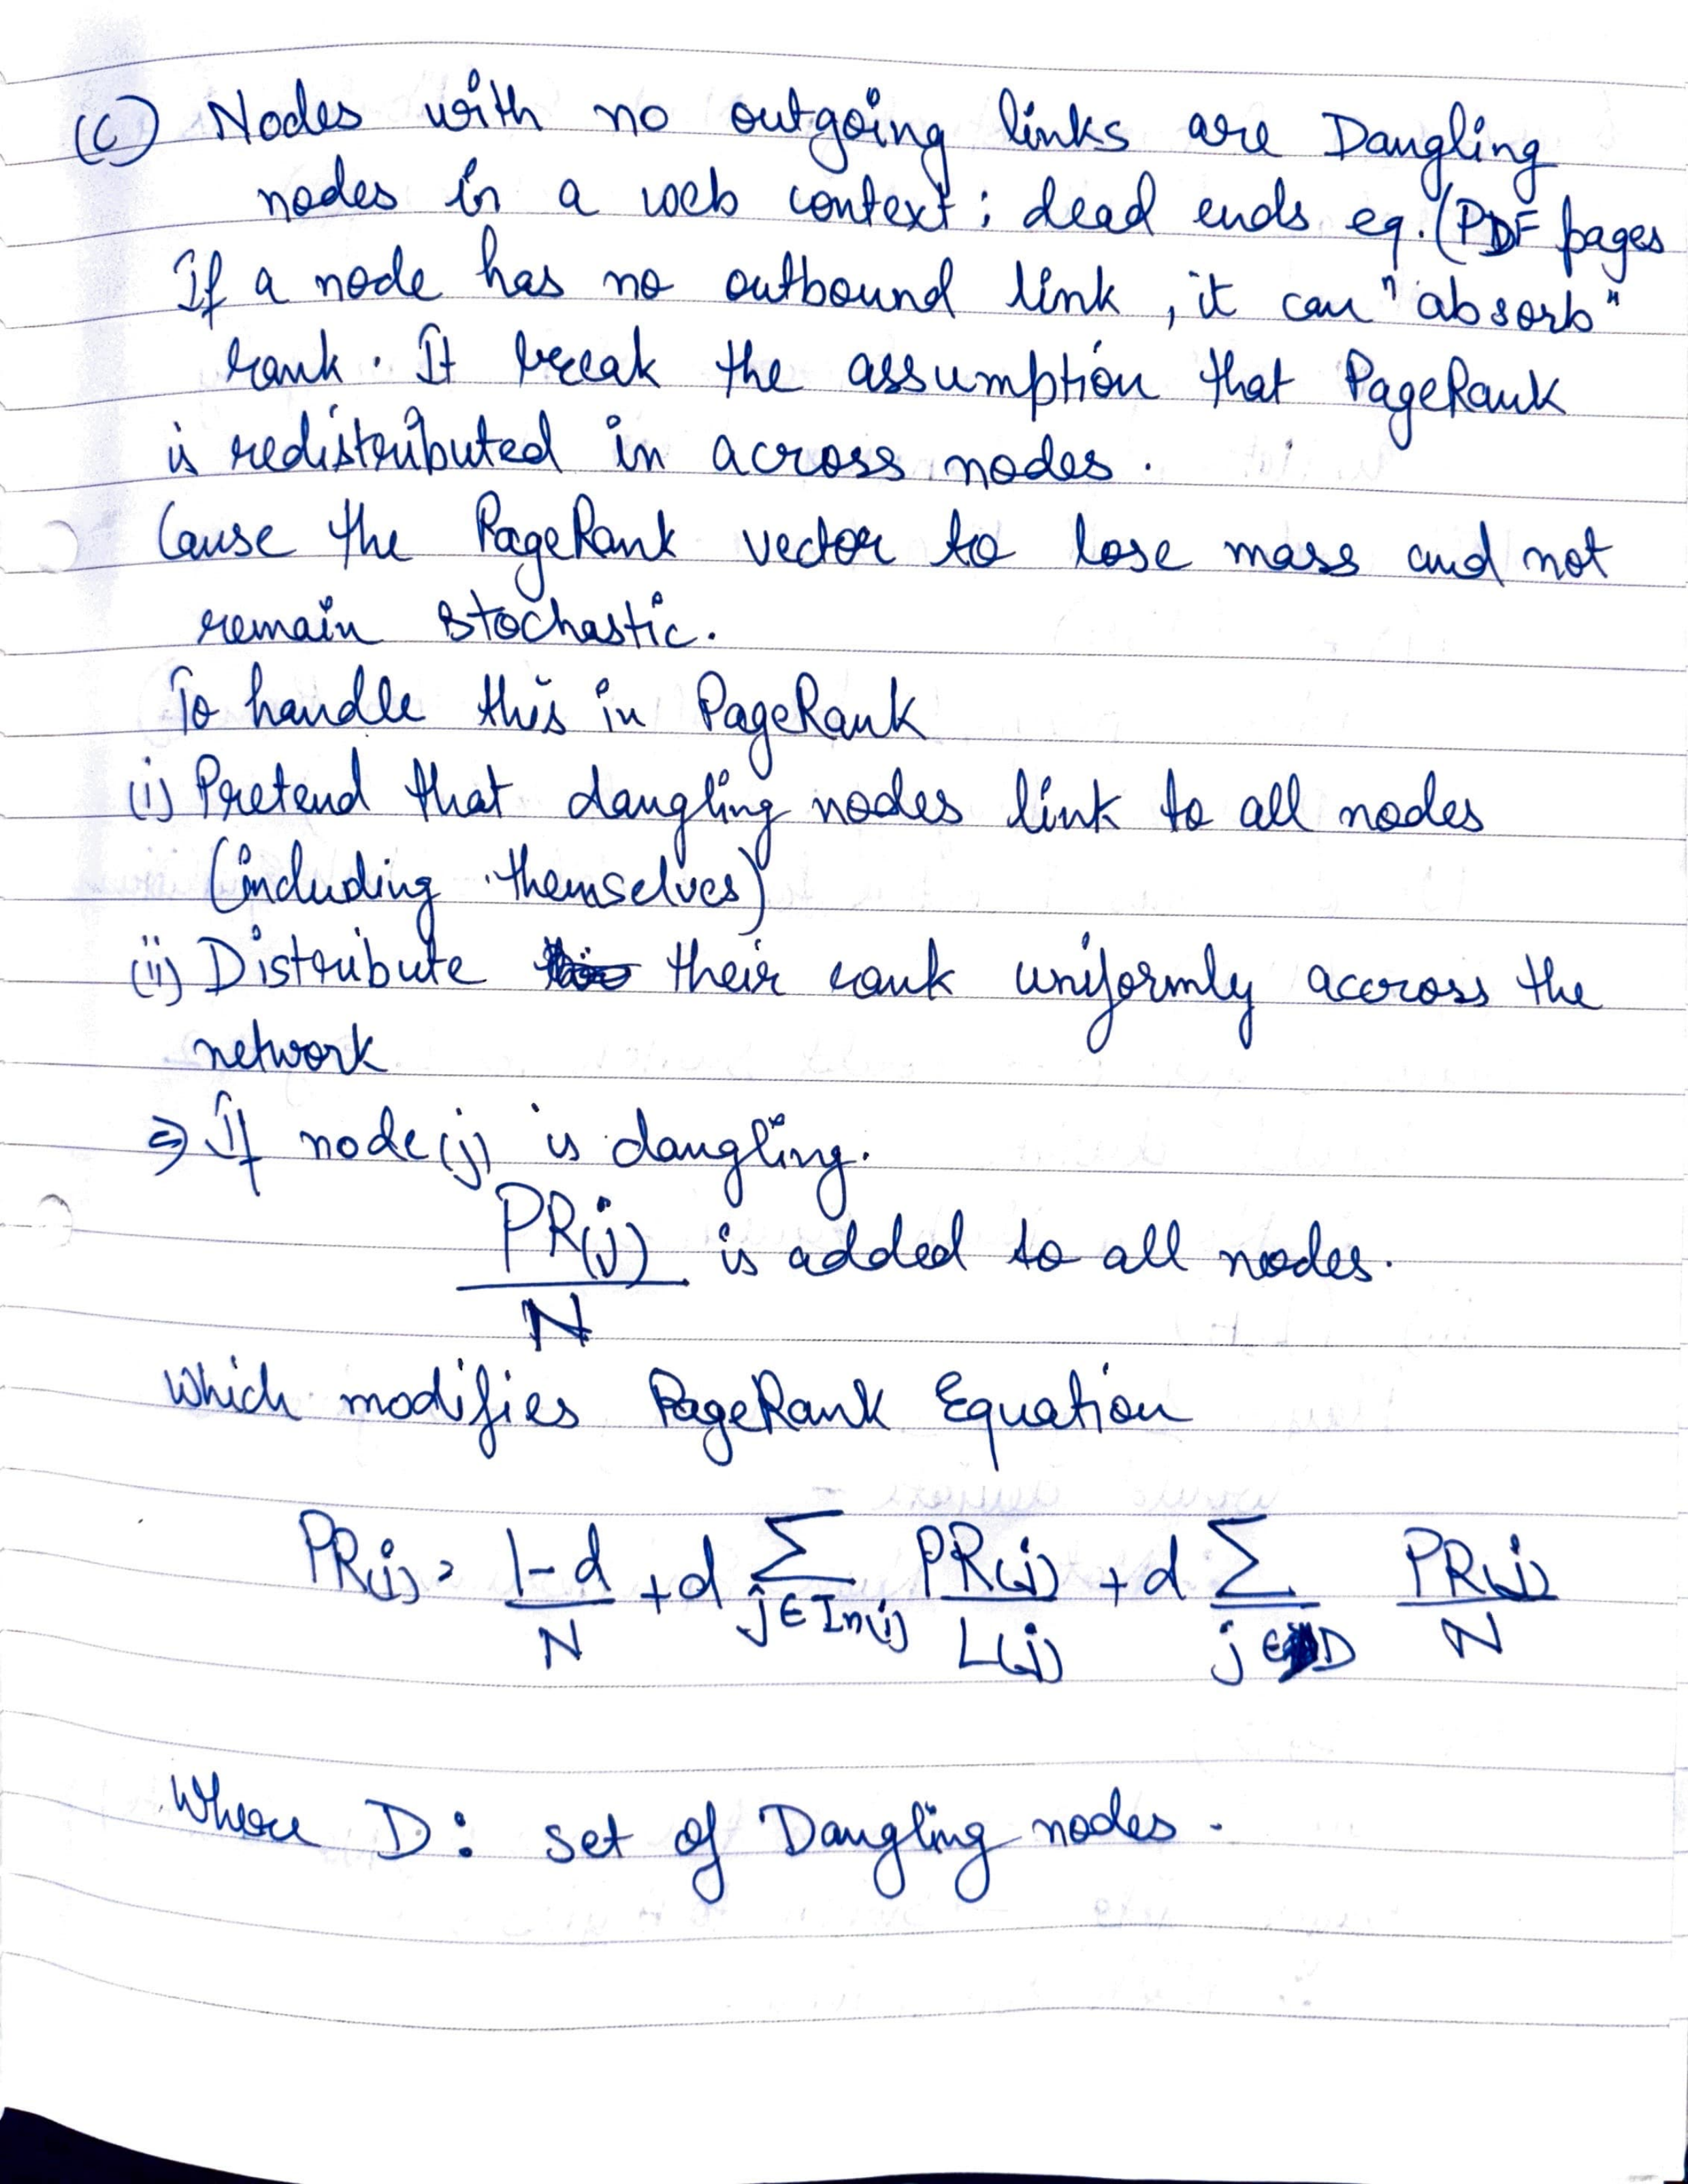 (C) Nodes with no outgoing links are Dangling
nodes in a web context; dead ends eg. (PDF pages
If a node has no outbound link, it can "absorb"
rank. It break the assumption that PageRank
is redistributed in across nodes.
Cause the PageRank vector to lose mass and not
remain stochastic.
To handle this in PageRank
(i) Pretend that dangling nodes link to all nodes
(including themselves)
(ii) Distribute their rank uniformly accross the
network
⇒ If node(j) is dangling.
PR(j)/N is added to all nodes.
Which modifies PageRank Equation
PR(i) = 1-d/N + d ∑ j∈In(i) PR(j)/L(j) + d ∑ j∈D PR(j)/N
Where D: set of Dangling nodes.